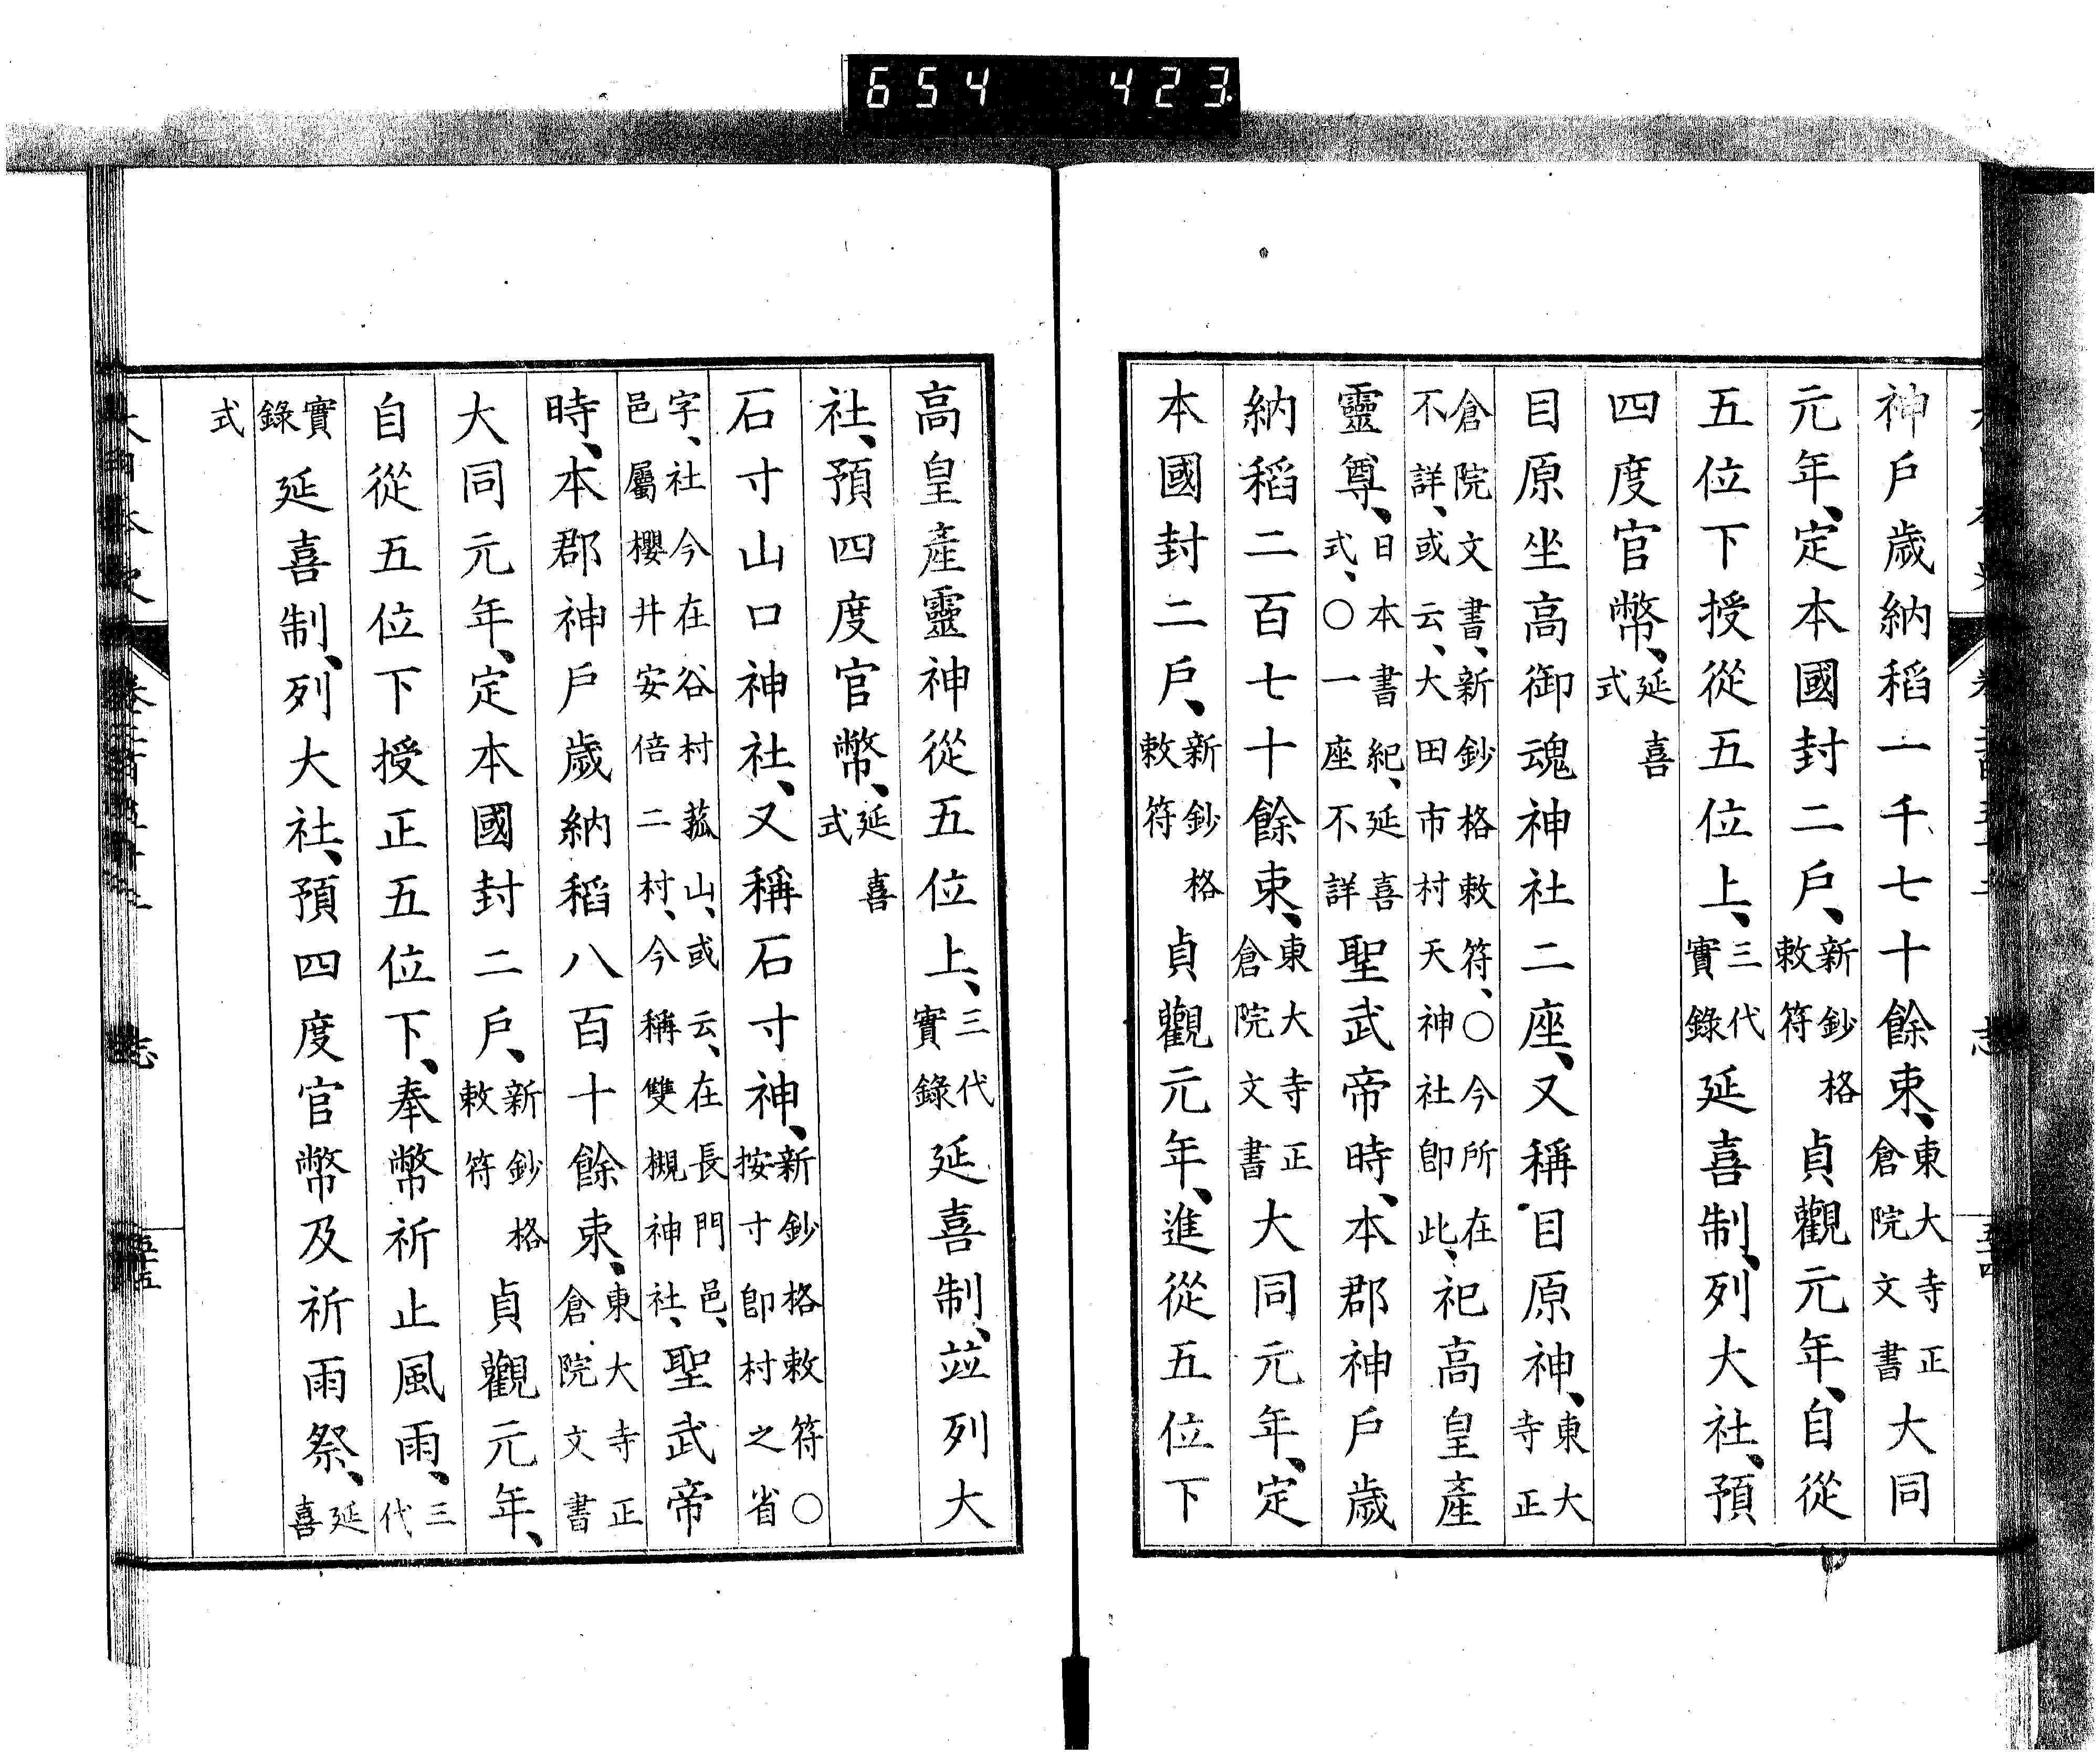 654 423
神戶歲納稻一千七十餘束、東大寺正倉院文書大同
元年、定本國封二戶、新鈔格敕符貞觀元年、自從
五位下授從五位上、三代實錄延喜制、列大社、預
四度官幣、延喜式
目原坐高御魂神社二座、又稱目原神、東大寺正
倉院文書、新鈔格敕符、○今所在不詳、或云、大田市村天神社卽此、祀高皇產
靈尊、日本書紀、延喜式、○一座不詳聖武帝時、本郡神戶歲
納稻二百七十餘束、東大寺正倉院文書大同元年、定
本國封二戶、新鈔格敕符貞觀元年、進從五位下
高皇產靈神從五位上、三代實錄延喜制、竝列大
社、預四度官幣、延喜式
石寸山口神社、又稱石寸神、新鈔格敕符○按寸卽村之省
字、社今在谷村菰山、或云、在長門邑、邑屬櫻井安倍二村、今稱雙槻神社、聖武帝
時、本郡神戶歲納稻八百十餘束、東大寺正倉院文書
大同元年、定本國封二戶、新鈔格敕符貞觀元年、
自從五位下授正五位下、奉幣祈止風雨、三代
實錄延喜制、列大社、預四度官幣及祈雨祭、延喜
式
志